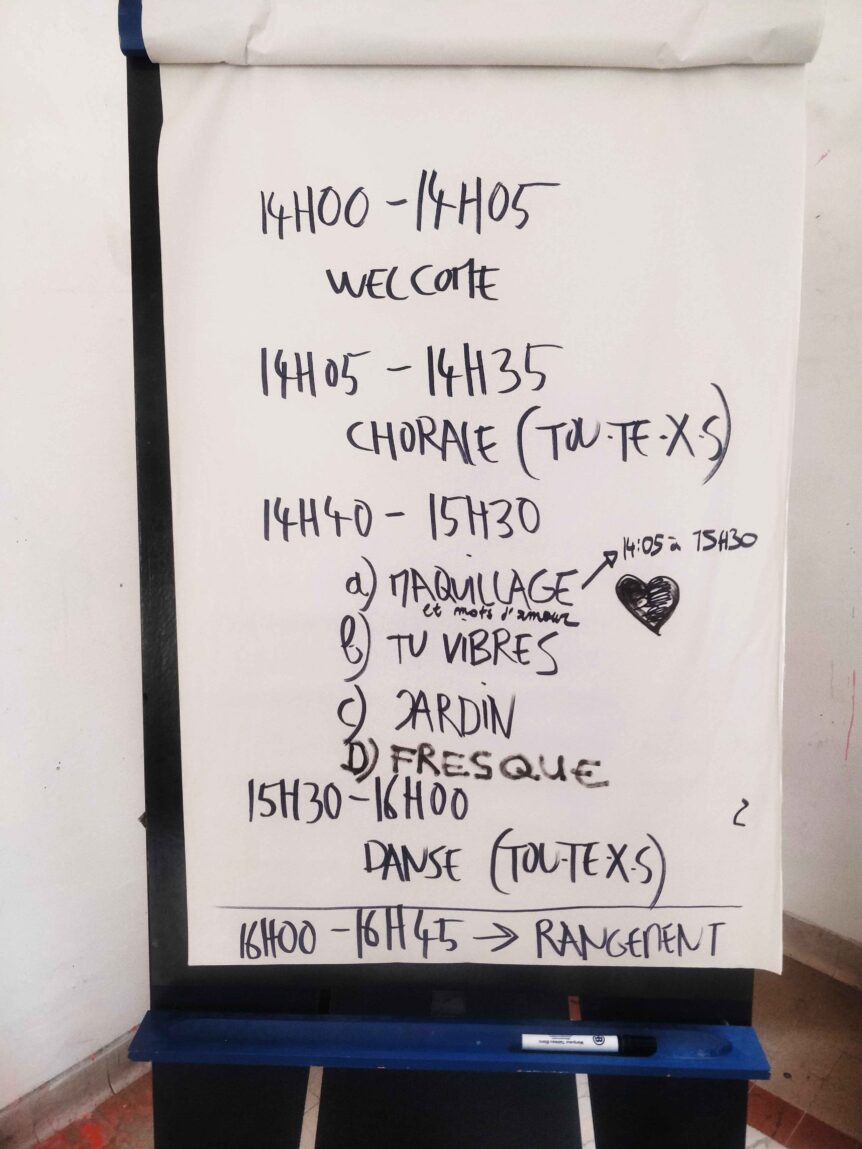 14H00 - 14H05
WELCOME
14H05 - 14H35
CHORALE (TOU·TE·X·S)
14H40 - 15H30
a) MAQUILLAGE → 14:05 à 15H30
et mots d'amour
b) TU VIBRES
c) JARDIN
D) FRESQUE
15H30 - 16H00
DANSE (TOU·TE·X·S)
16H00 - 16H45 → RANGEMENT